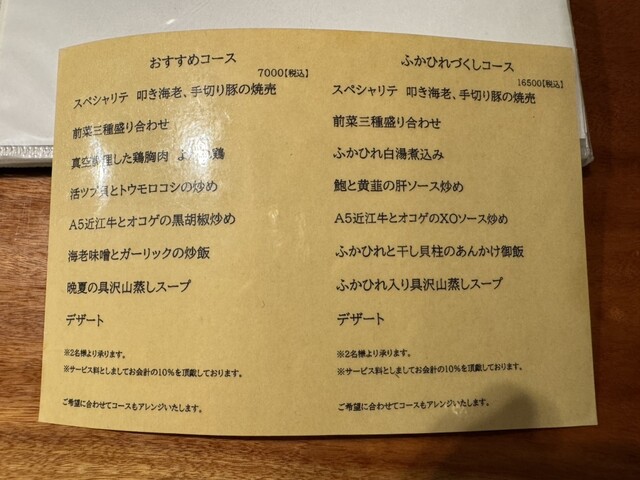 おすすめコース
7000【税込】
スペシャリテ 叩き海老、手切り豚の焼売
前菜三種盛り合わせ
真空調理した鶏胸肉 よだれ鶏
活ツブ貝とトウモロコシの炒め
A5近江牛とオコゲの黒胡椒炒め
海老味噌とガーリックの炒飯
晩夏の具沢山蒸しスープ
デザート
※2名様より承ります。
※サービス料としましてお会計の10%を頂戴しております。
ご希望に合わせてコースもアレンジいたします。
ふかひれづくしコース
16500【税込】
スペシャリテ 叩き海老、手切り豚の焼売
前菜三種盛り合わせ
ふかひれ白湯煮込み
鮑と黄韮の肝ソース炒め
A5近江牛とオコゲのXOソース炒め
ふかひれと干し貝柱のあんかけ御飯
ふかひれ入り具沢山蒸しスープ
デザート
※2名様より承ります。
※サービス料としましてお会計の10%を頂戴しております。
ご希望に合わせてコースもアレンジいたします。